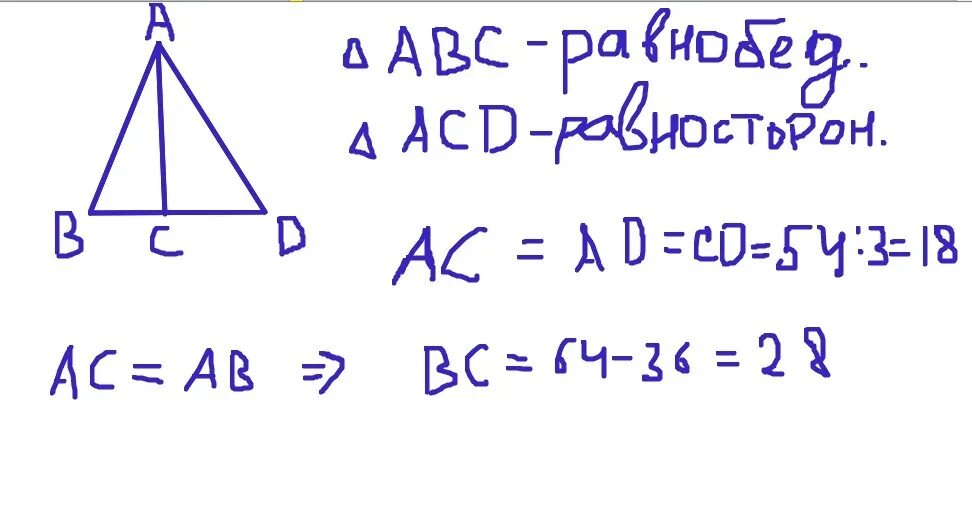 A
B C D
△ ABC - равнобед.
△ ACD - равносторон.
AC = AD = CD = 54 : 3 = 18
AC = AB ⇒ BC = 64 - 36 = 28